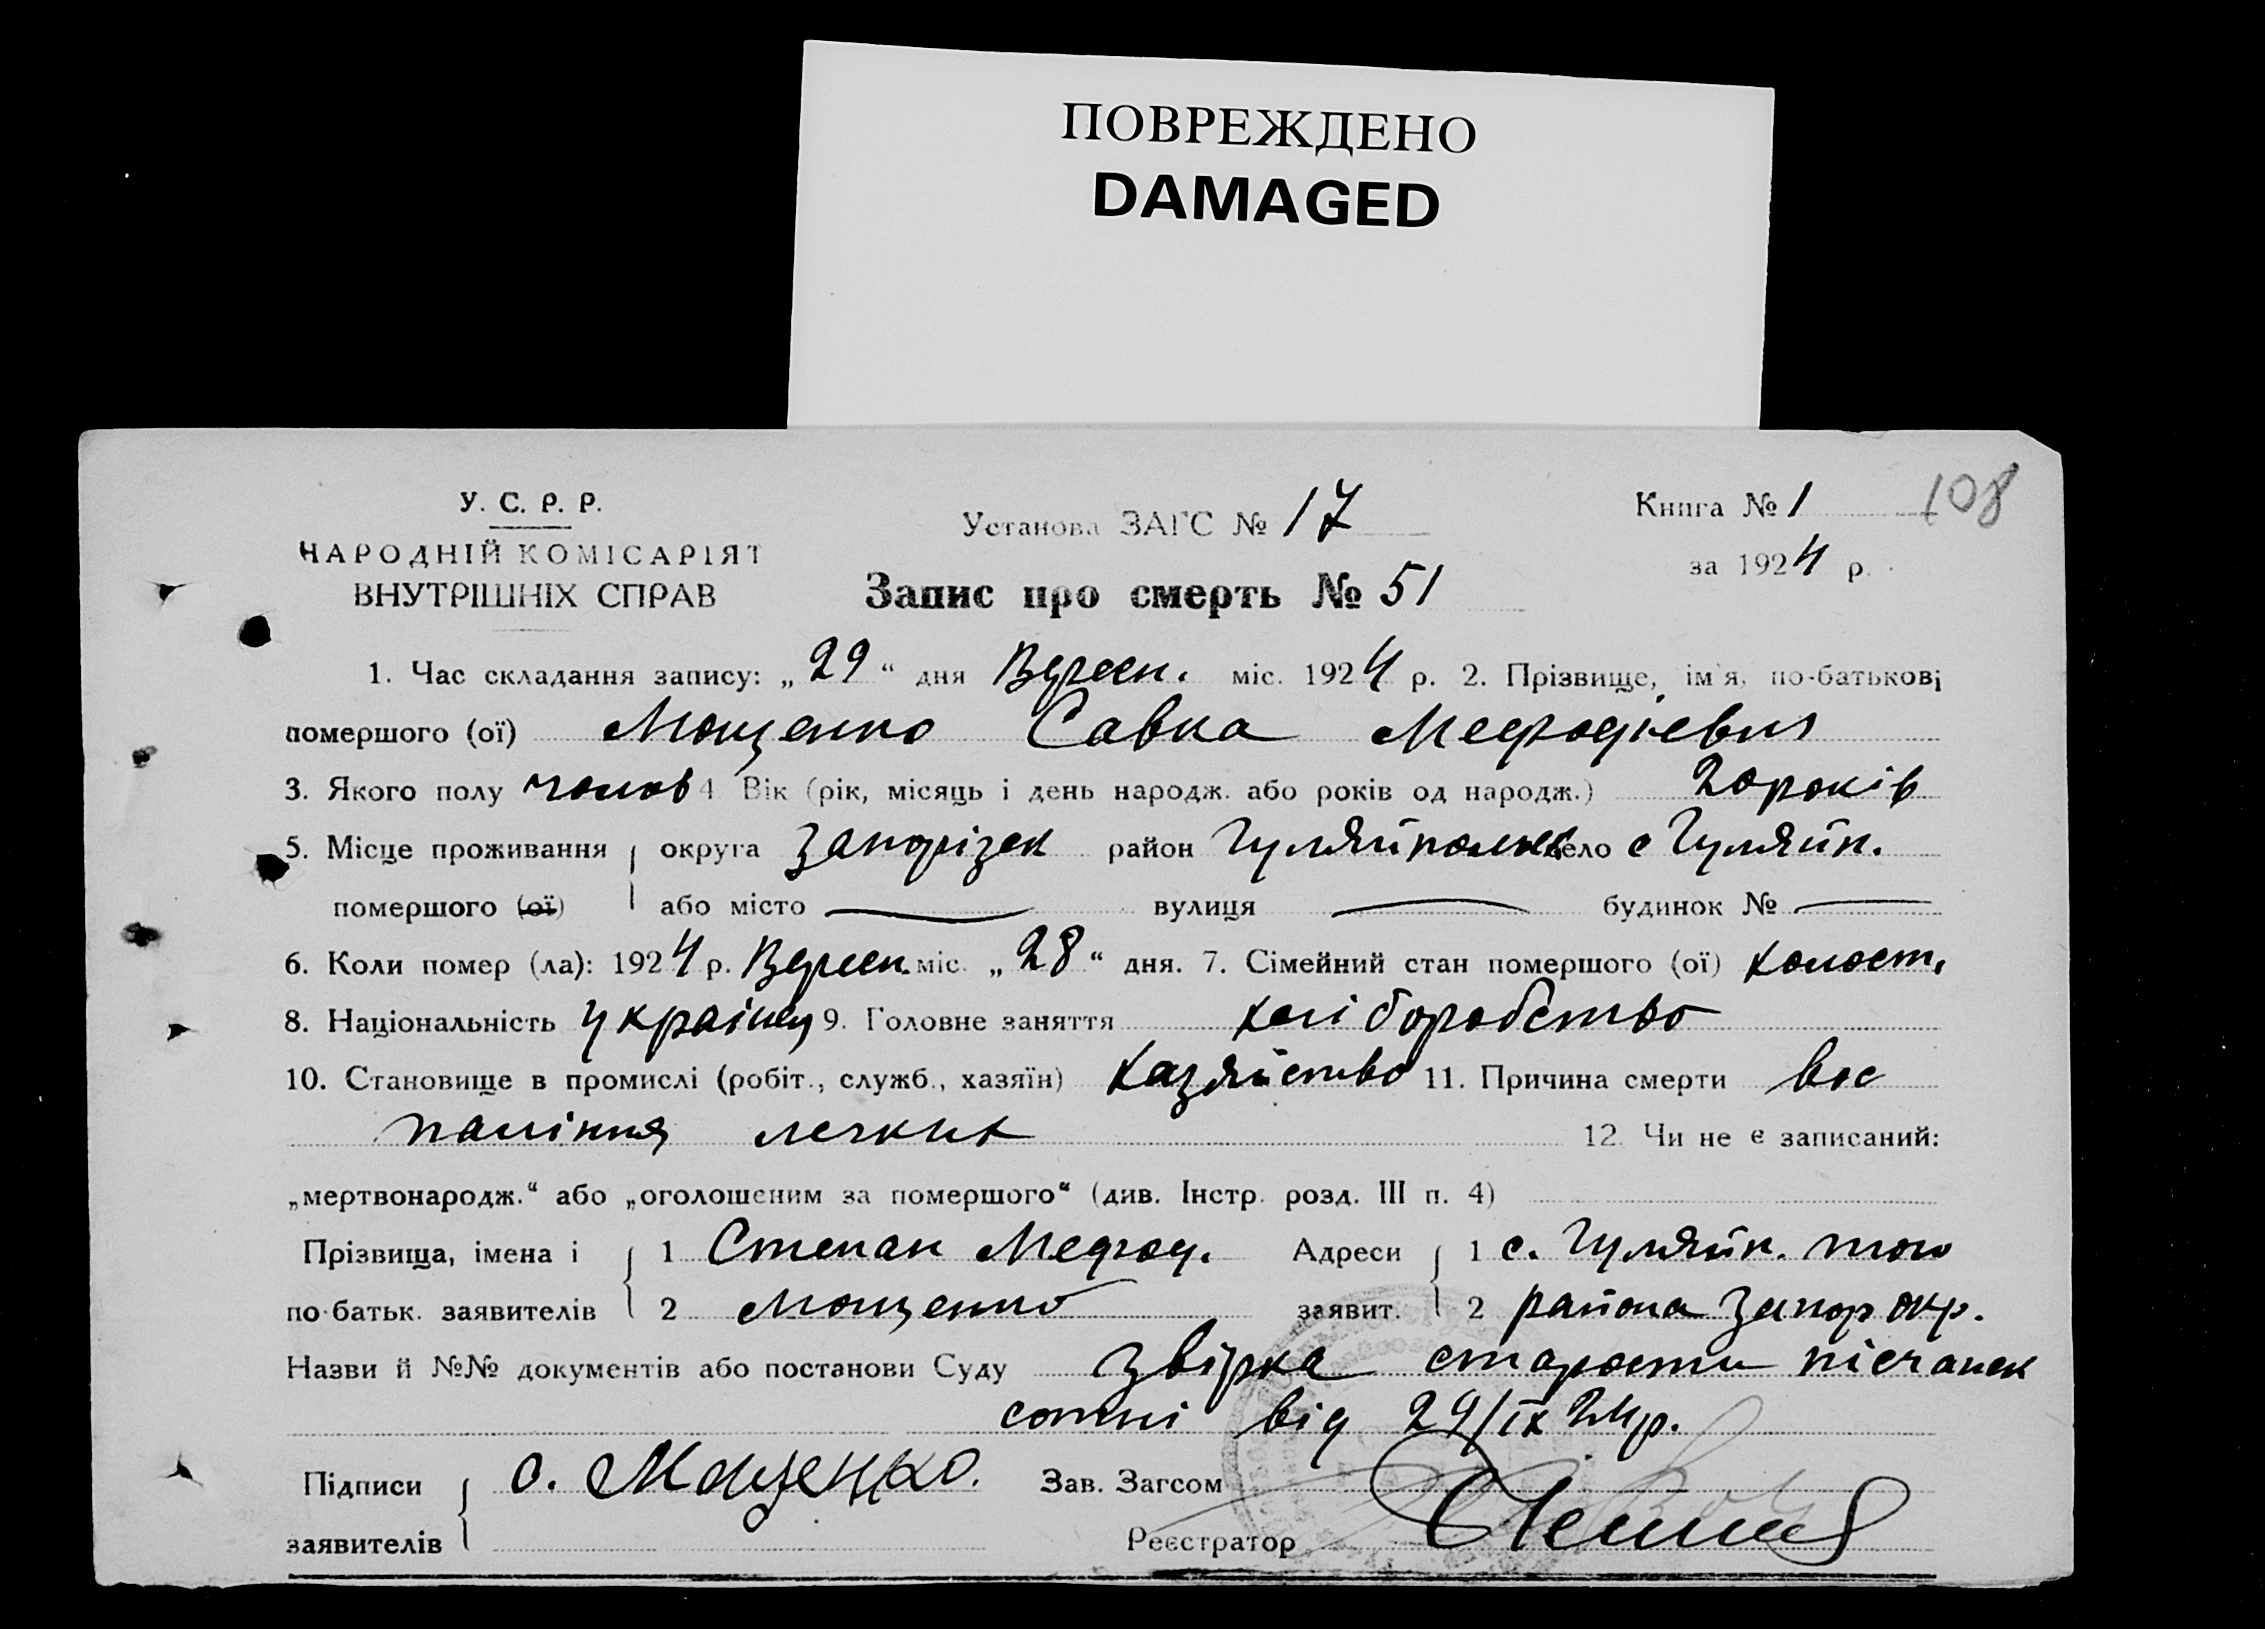 ПОВРЕЖДЕНО
DAMAGED
У. С. Р. Р.
НАРОДНІЙ КОМІСАРІЯТ
ВНУТРІШНІХ СПРАВ
Установа ЗАГС № 17
Книга № 1
108
за 1924 р.
Запис про смерть № 51
1. Час складання запису: „29“ дня Вересн. міс. 1924 р. 2. Прізвище, ім'я, по-батькові
помершого (ої) Мощенко Савка Мефодіевич
3. Якого полу чолов 4 Вік (рік, місяць і день народж. або років од народж.) 20 років
5. Місце проживання округа Запорізск район Гуляйпольск село с Гуляйп.
помершого (ої) або місто вулиця будинок №
6. Коли помер (ла): 1924 р. Вересн. міс. „28“ дня. 7. Сімейний стан помершого (ої) холост.
8. Національність українец 9. Головне заняття хліборобство
10. Становище в промислі (робіт., служб., хазяїн) хазяйство 11. Причина смерти вос
паління легких 12. Чи не є записаний:
„мертвонародж.“ або „оголошеним за помершого“ (див. Інстр. розд. III п. 4)
Прізвища, імена і 1 Степан Мефод. Адреси 1 с. Гуляйп. того
по-батьк. заявителів 2 Мощенко заявит. 2 района Запор окр.
Назви й №№ документів або постанови Суду Звірка старости пісчанск
сотні від 29/IX 24 р.
Підписи С. Мощенко. Зав. Загсом
заявителів Реєстратор